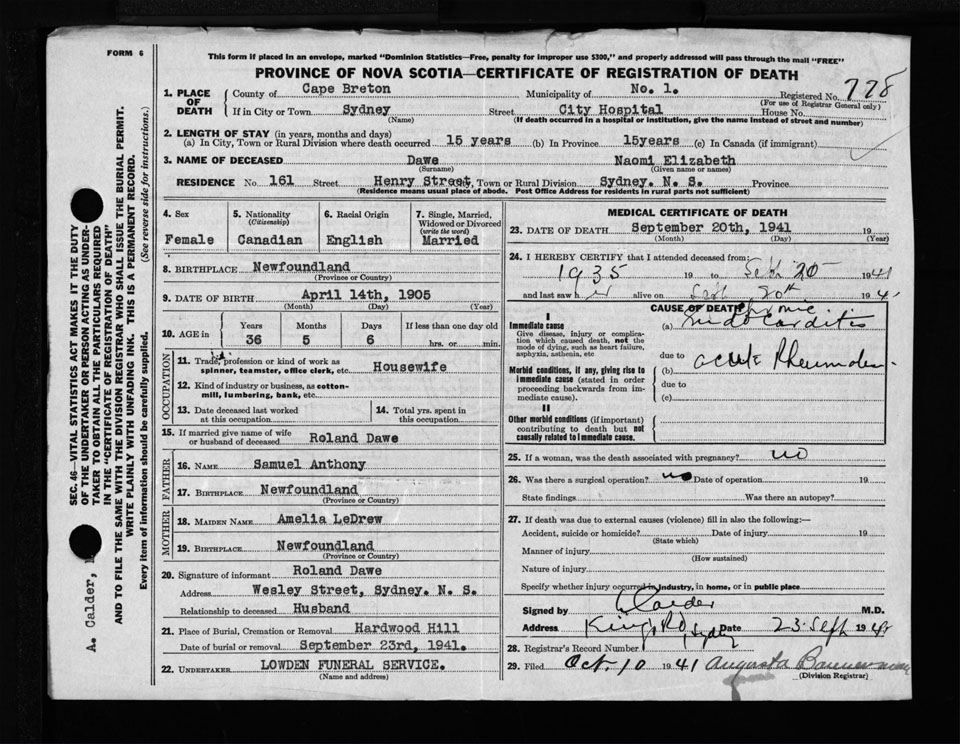 FORM 6
This form if placed in an envelope, marked "Dominion Statistics—Free, penalty for improper use $300," and properly addressed will pass through the mail "FREE"
PROVINCE OF NOVA SCOTIA—CERTIFICATE OF REGISTRATION OF DEATH
1. PLACE OF DEATH County of Cape Breton Municipality of No. 1. Registered No. 778
(For use of Registrar General only)
If in City or Town Sydney Street City Hospital House No.
(Name) (If death occurred in a hospital or institution, give the name instead of street and number)
2. LENGTH OF STAY (in years, months and days)
(a) In City, Town or Rural Division where death occurred 15 years (b) In Province 15years (c) In Canada (if immigrant)
3. NAME OF DECEASED Dawe Naomi Elizabeth
(Surname) (Given name or names)
RESIDENCE No. 161 Street Henry Street, Town or Rural Division Sydney. N. S. Province
(Residence means usual place of abode. Post Office Address for residents in rural parts not sufficient)
4. Sex
Female
5. Nationality
(Citizenship)
Canadian
6. Racial Origin
English
7. Single, Married, Widowed or Divorced
(write the word)
Married
8. BIRTHPLACE Newfoundland
(Province or Country)
9. DATE OF BIRTH April 14th, 1905
(Month) (Day) (Year)
10. AGE in
Years Months Days If less than one day old
36 5 6 hrs. or min.
OCCUPATION
11. Trade, profession or kind of work as
spinner, teamster, office clerk, etc. Housewife
12. Kind of industry or business, as cotton-
mill, lumbering, bank, etc.
13. Date deceased last worked
at this occupation
14. Total yrs. spent in
this occupation
15. If married give name of wife
or husband of deceased Roland Dawe
FATHER
16. NAME Samuel Anthony
17. BIRTHPLACE Newfoundland
(Province or Country)
MOTHER
18. MAIDEN NAME Amelia LeDrew
19. BIRTHPLACE Newfoundland
(Province or Country)
20. Signature of informant Roland Dawe
Address Wesley Street, Sydney. N. S.
Relationship to deceased Husband
21. Place of Burial, Cremation or Removal Hardwood Hill
Date of burial or removal September 23rd, 1941.
22. UNDERTAKER LOWDEN FUNERAL SERVICE.
(Name and address)
MEDICAL CERTIFICATE OF DEATH
23. DATE OF DEATH September 20th, 1941 19
(Month) (Day) (Year)
24. I HEREBY CERTIFY that I attended deceased from:
1935 19 to Sept 20 1941
and last saw her alive on Sept 20th 194
CAUSE OF DEATH
I
Immediate cause
Give disease, injury or complica-
tion which caused death, not the
mode of dying, such as heart failure,
asphyxia, asthenia, etc
(a) Chronic Endocarditis
due to
Morbid conditions, if any, giving rise to
immediate cause (stated in order
proceeding backwards from im-
mediate cause).
(b) acute
due to
(c)
II
Other morbid conditions (if important)
contributing to death but not
causally related to immediate cause.
25. If a woman, was the death associated with pregnancy? no
26. Was there a surgical operation? no Date of operation 19
State findings Was there an autopsy?
27. If death was due to external causes (violence) fill in also the following:—
Accident, suicide or homicide? Date of injury 19
(State which)
Manner of injury
(How sustained)
Nature of injury
Specify whether injury occurred in industry, in home, or in public place
Signed by A Calder M.D.
Address Kings Rd Sydney Date 23 Sept 194
28. Registrar's Record Number
29. Filed Oct. 10 1941 Augusta
(Division Registrar)
SEC. 46—VITAL STATISTICS ACT MAKES IT THE DUTY
OF THE UNDERTAKER OR PERSON ACTING AS UNDER-
TAKER TO OBTAIN ALL THE PARTICULARS REQUIRED
IN THE "CERTIFICATE OF REGISTRATION OF DEATH"
AND TO FILE THE SAME WITH THE DIVISION REGISTRAR WHO SHALL ISSUE THE BURIAL PERMIT.
WRITE PLAINLY WITH UNFADING INK. THIS IS A PERMANENT RECORD.
Every item of information should be carefully supplied. (See reverse side for instructions.)
A. Calder,